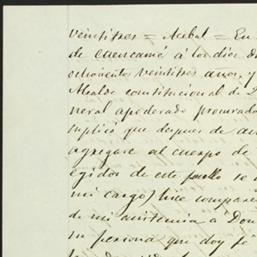 veintitres = Acibal = En
de Cuencamé á los diez d
ochocientos veintitres años, y
Alcalde constitucional de 2
neral apoderado
suplicó que despues de
agregase al cuerpo de
egidos de este pueblo se
mi cargo) hice compare
de mi asistencia a Don
su persona que doy fé